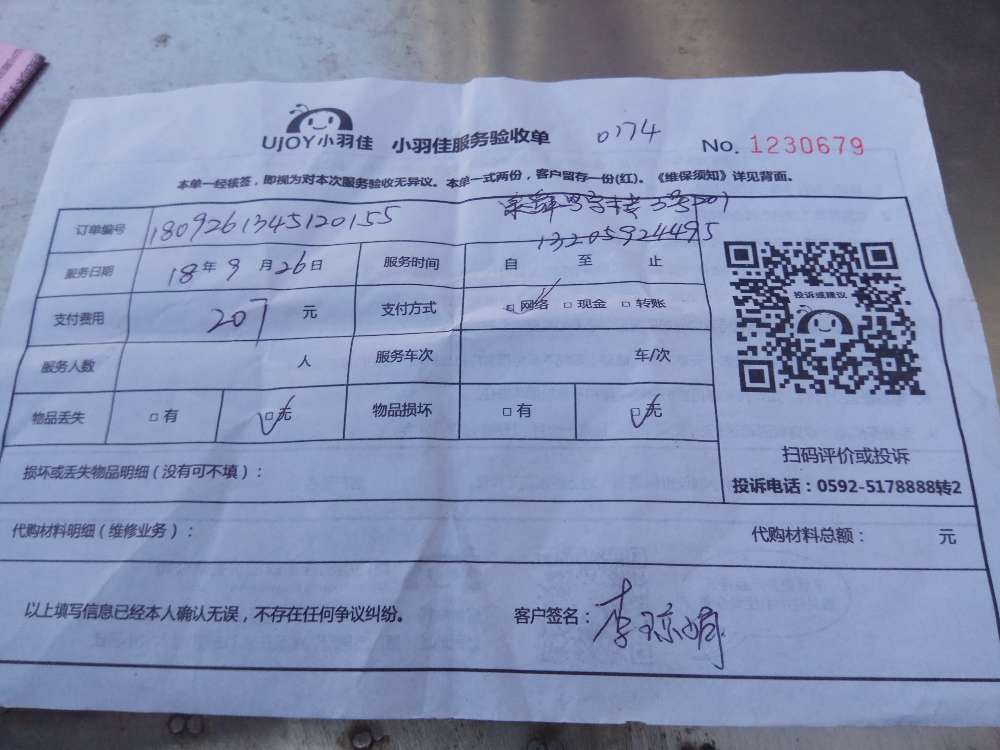 UJOY小羽佳 小羽佳服务验收单 0174 No. 1230679
本单一经核签，即视为对本次服务验收无异议。本单一式两份，客户留存一份(红)。《维保须知》详见背面。
订单编号 1809261345120155
13205924495
服务日期 18年9月26日 服务时间 自 至 止
支付费用 207 元 支付方式 □网络 □现金 □转账
服务人数 人 服务车次 车/次
物品丢失 □有 □无 物品损坏 □有 □无
投诉或建议
扫码评价或投诉
投诉电话：0592-5178888转2
损坏或丢失物品明细（没有可不填）：
代购材料明细（维修业务）： 代购材料总额： 元
以上填写信息已经本人确认无误，不存在任何争议纠纷。 客户签名：李琼娟